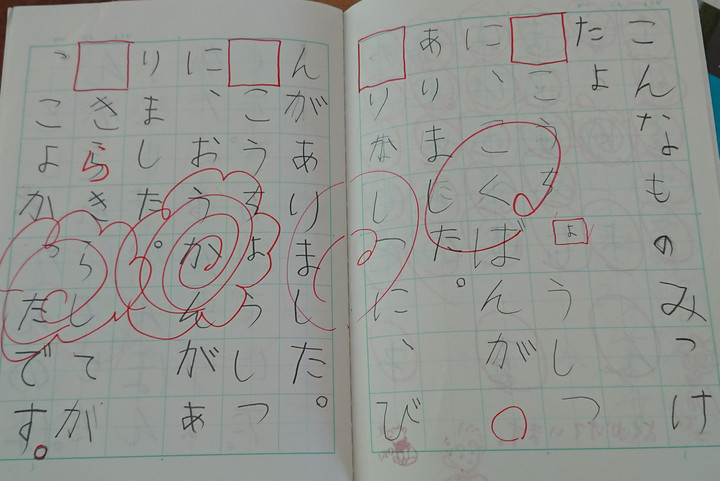 こんなものみつけ
たよ
こうちょうしつ
に、こくばんが
ありました。
りかしつに、び
んがありました。
こうちょうしつ
に、おうかんがあ
りました。
きらきらしてが
っこよかったです。